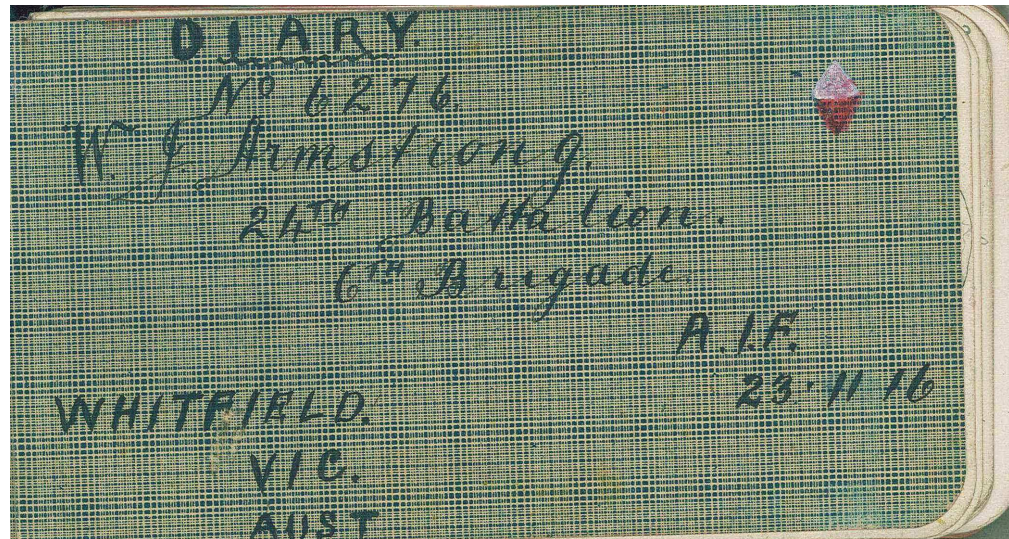 DIARY.
Nº 6276.
W. J. Armstrong.
24TH Battalion.
6TH Brigade.
A.I.F.
23·11 16
WHITFIELD.
VIC.
AUST